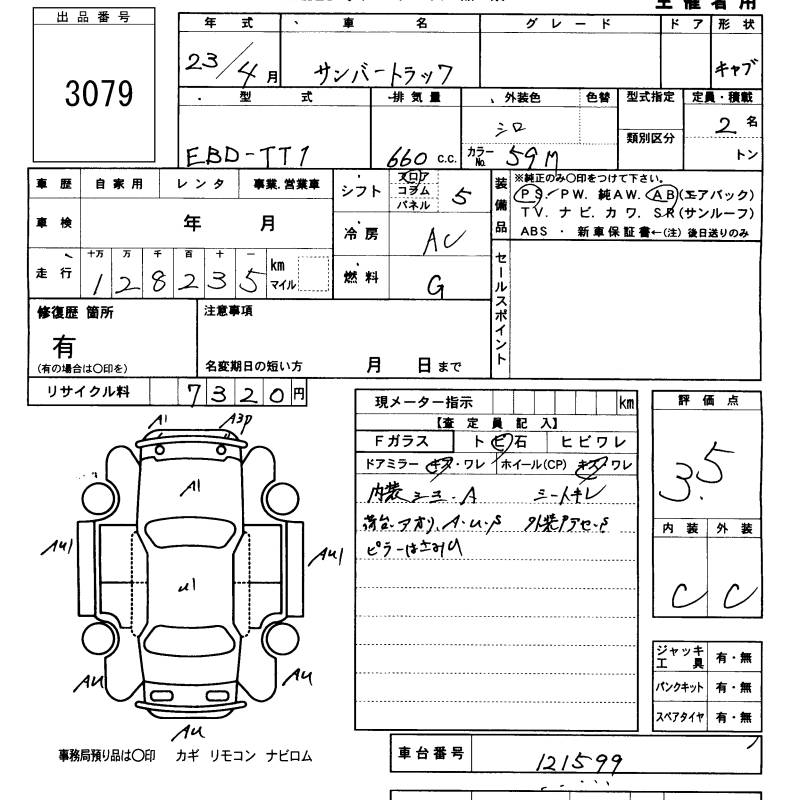 出品番号
3079
主催者用
年式 車名 グレード ドア 形状
23/4月 サンバートラック キャブ
型式 排気量 外装色 色替 型式指定 定員・積載
EBD-TT1 660 c.c. シロ 類別区分 2名
カラーNo. 59M トン
車歴 自家用 レンタ 事業.営業車
車検 年 月
走行 十万 万 千 百 十 一
128235 km マイル
シフト フロア コラム パネル 5
冷房 AC
燃料 G
装備品
※純正のみ〇印をつけて下さい。
PS. PW. 純AW. AB(エアバック)
TV. ナビ. カワ. SR(サンルーフ)
ABS ・ 新車保証書←(注) 後日送りのみ
セールスポイント
修復歴 箇所
有
(有の場合は〇印を)
注意事項
名変期日の短い方 月 日まで
リサイクル料 7320円
現メーター指示 km
【査定員記入】
Fガラス トビ石 ヒビワレ
ドアミラー キズ・ワレ ホイール(CP) キズ・ワレ
内装 シヨ.A シートキレ
荷台.アオリ.A.U.S
ピラーはさみU
評価点
3.5
内装 外装
C C
ジャッキ工具 有・無
パンクキット 有・無
スペアタイヤ 有・無
A1 A3P
A1
AU1 U1 AU1
AU AU
AU
事務局預り品は〇印 カギ リモコン ナビロム
車台番号 121599